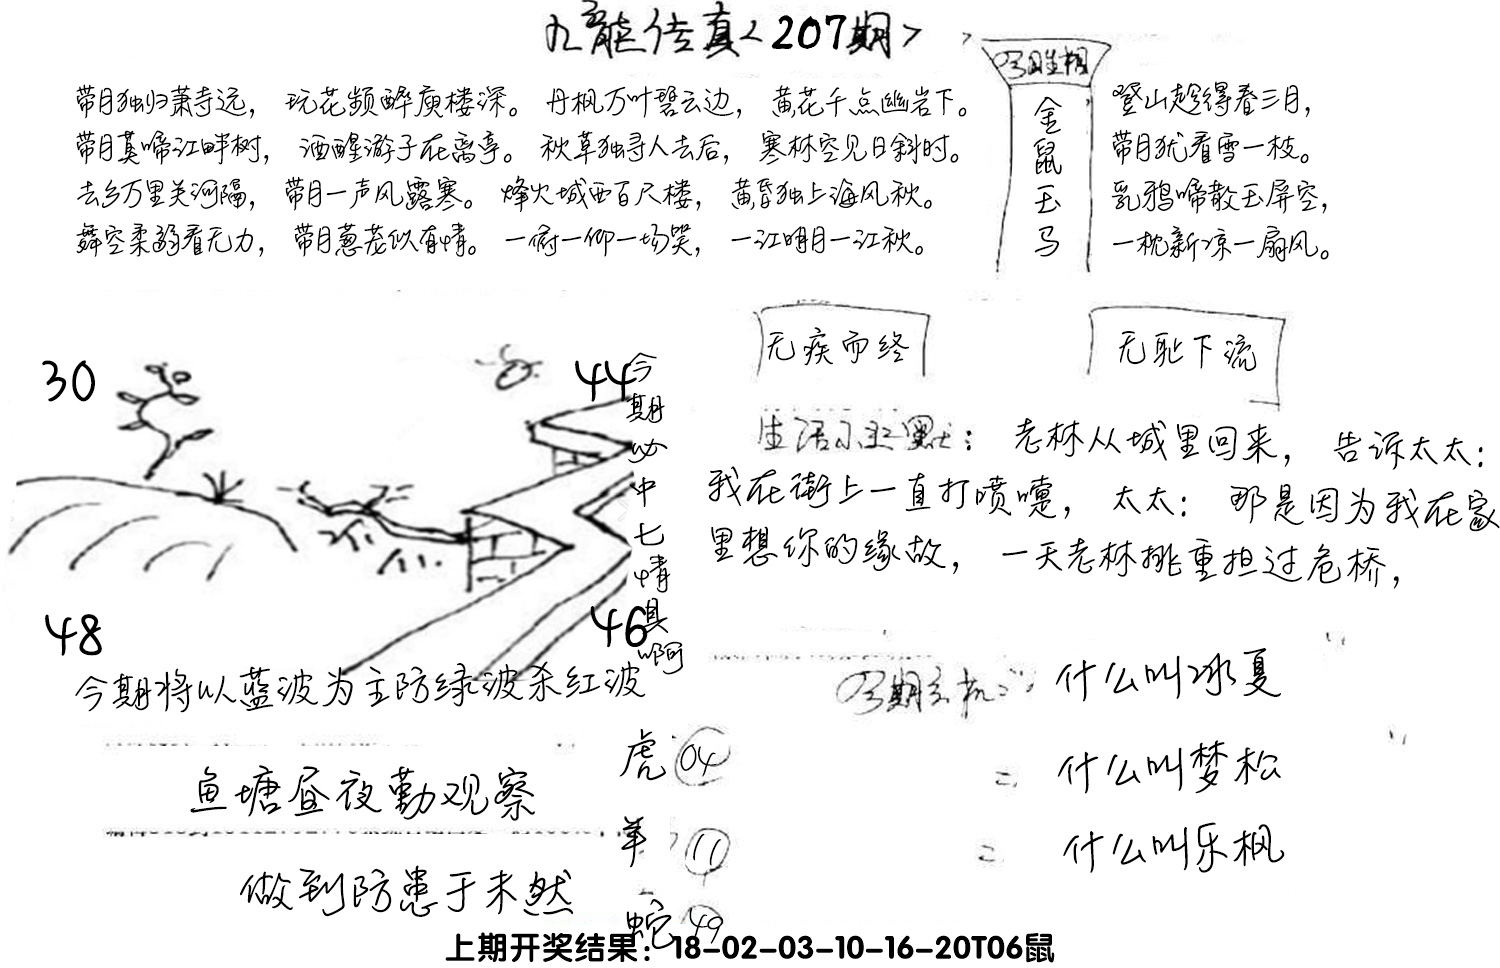 九龙传真<207期>
带月独归萧寺远，玩花频醉庾楼深。丹枫万叶碧云边，黄花千点幽岩下。
带月莫啼江畔树，酒醒游子在离亭。秋草独寻人去后，寒林空见日斜时。
去乡万里关河隔，带月一声风露寒。烽火城西百尺楼，黄昏独上海风秋。
舞空柔弱看无力，带月葱茏似有情。一俯一仰一场笑，一江明月一江秋。
今期生相
金鼠玉马
登山趁得春三月，
带月犹看雪一枝。
乳鸦啼散玉屏空，
一枕新凉一扇风。
30
44
48
46
今期必中七情具啊
今期将以蓝波为主防绿波杀红波
无疾而终
无耻下流
生活小幽默：老林从城里回来，告诉太太：
我在街上一直打喷嚏，太太：那是因为我在家
里想你的缘故，一天老林挑重担过危桥，
今期玄机：什么叫冰夏
=什么叫梦松
=什么叫乐枫
鱼塘昼夜勤观察
做到防患于未然
虎 04
羊 11
蛇 49
上期开奖结果：18-02-03-10-16-20T06鼠